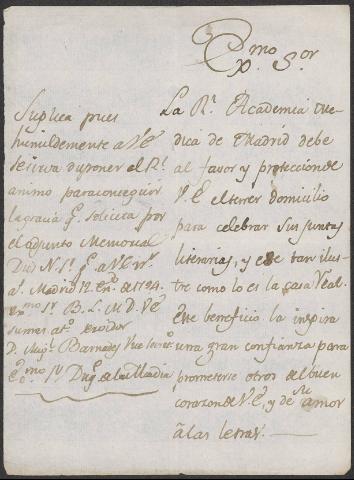 Exmo. Sor.
La Rl. Academia Me-
dica de Madrid debe
al favor y proteccion de
V.E. el tener domicilio
para celebrar sus juntas
literarias, y ese tan ilus-
tre como lo es la casa Real.
Este beneficio la inspira
una gran confianza para
prometerse otros del buen
corazon de V.E., y de su amor
à las letras.
Suplica pues
humildemente a V.E.
se sirva disponer el Rl.
animo para conseguir
la gracia q. solicita por
el adjunto Memorial
Dios N. Sr. g. a V.E. ms.
as. Madrid 12 En.
Exmo. Sr. B. L. M. D. V.E.
su mas ato. servidor
D. Migl. Barnades
Exmo. Sr. Duq. de la